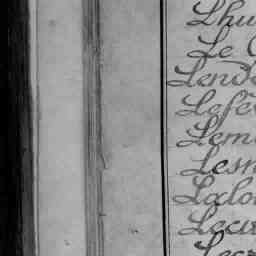 Lhu
Le
Lend
Lefé
Lem
Lesn
Lalo
Lecu